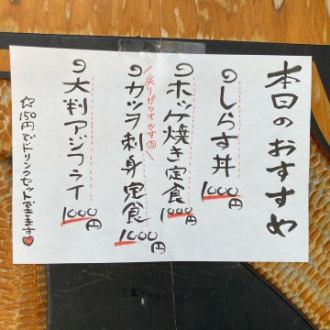 本日のおすすめ
のしらす丼
1000円
のホッケ焼き定食
1000円
戻りガツオです
のカツオ刺身定食
1000円
の大判アジフライ
1000円
☆150円でドリンクセットできます♥